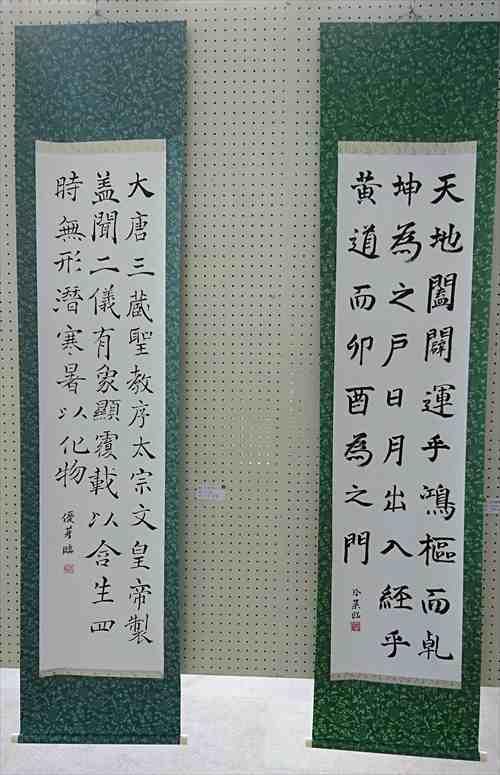 天地闔闢運乎鴻樞而乹
坤為之戸日月出入経乎
黄道而卯酉為之門
大唐三蔵聖教序太宗文皇帝製
盖聞二儀有象顯覆載以含生四
時無形潛寒暑以化物